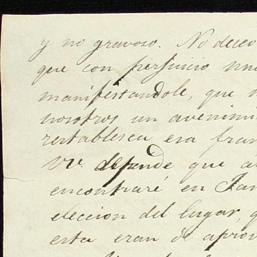 y no gravoso. No deseo
que con perjuicio
manifestandole, que
nosotros un avenimi
restablesca esa fran
VV. depende que a
encontraré en
eleccion del lugar, q
esta eran de apro